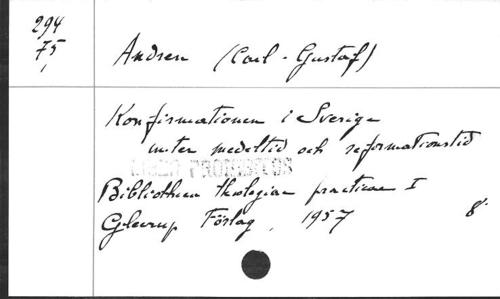 294
75
Andren (Carl-Gustaf)
Konfirmationen i Sverige
under medeltid och reformationstid
LIBER PROHIBITUS
Bibliotheca theologiae practicae I
Gleerup Förlag, 1957 8°